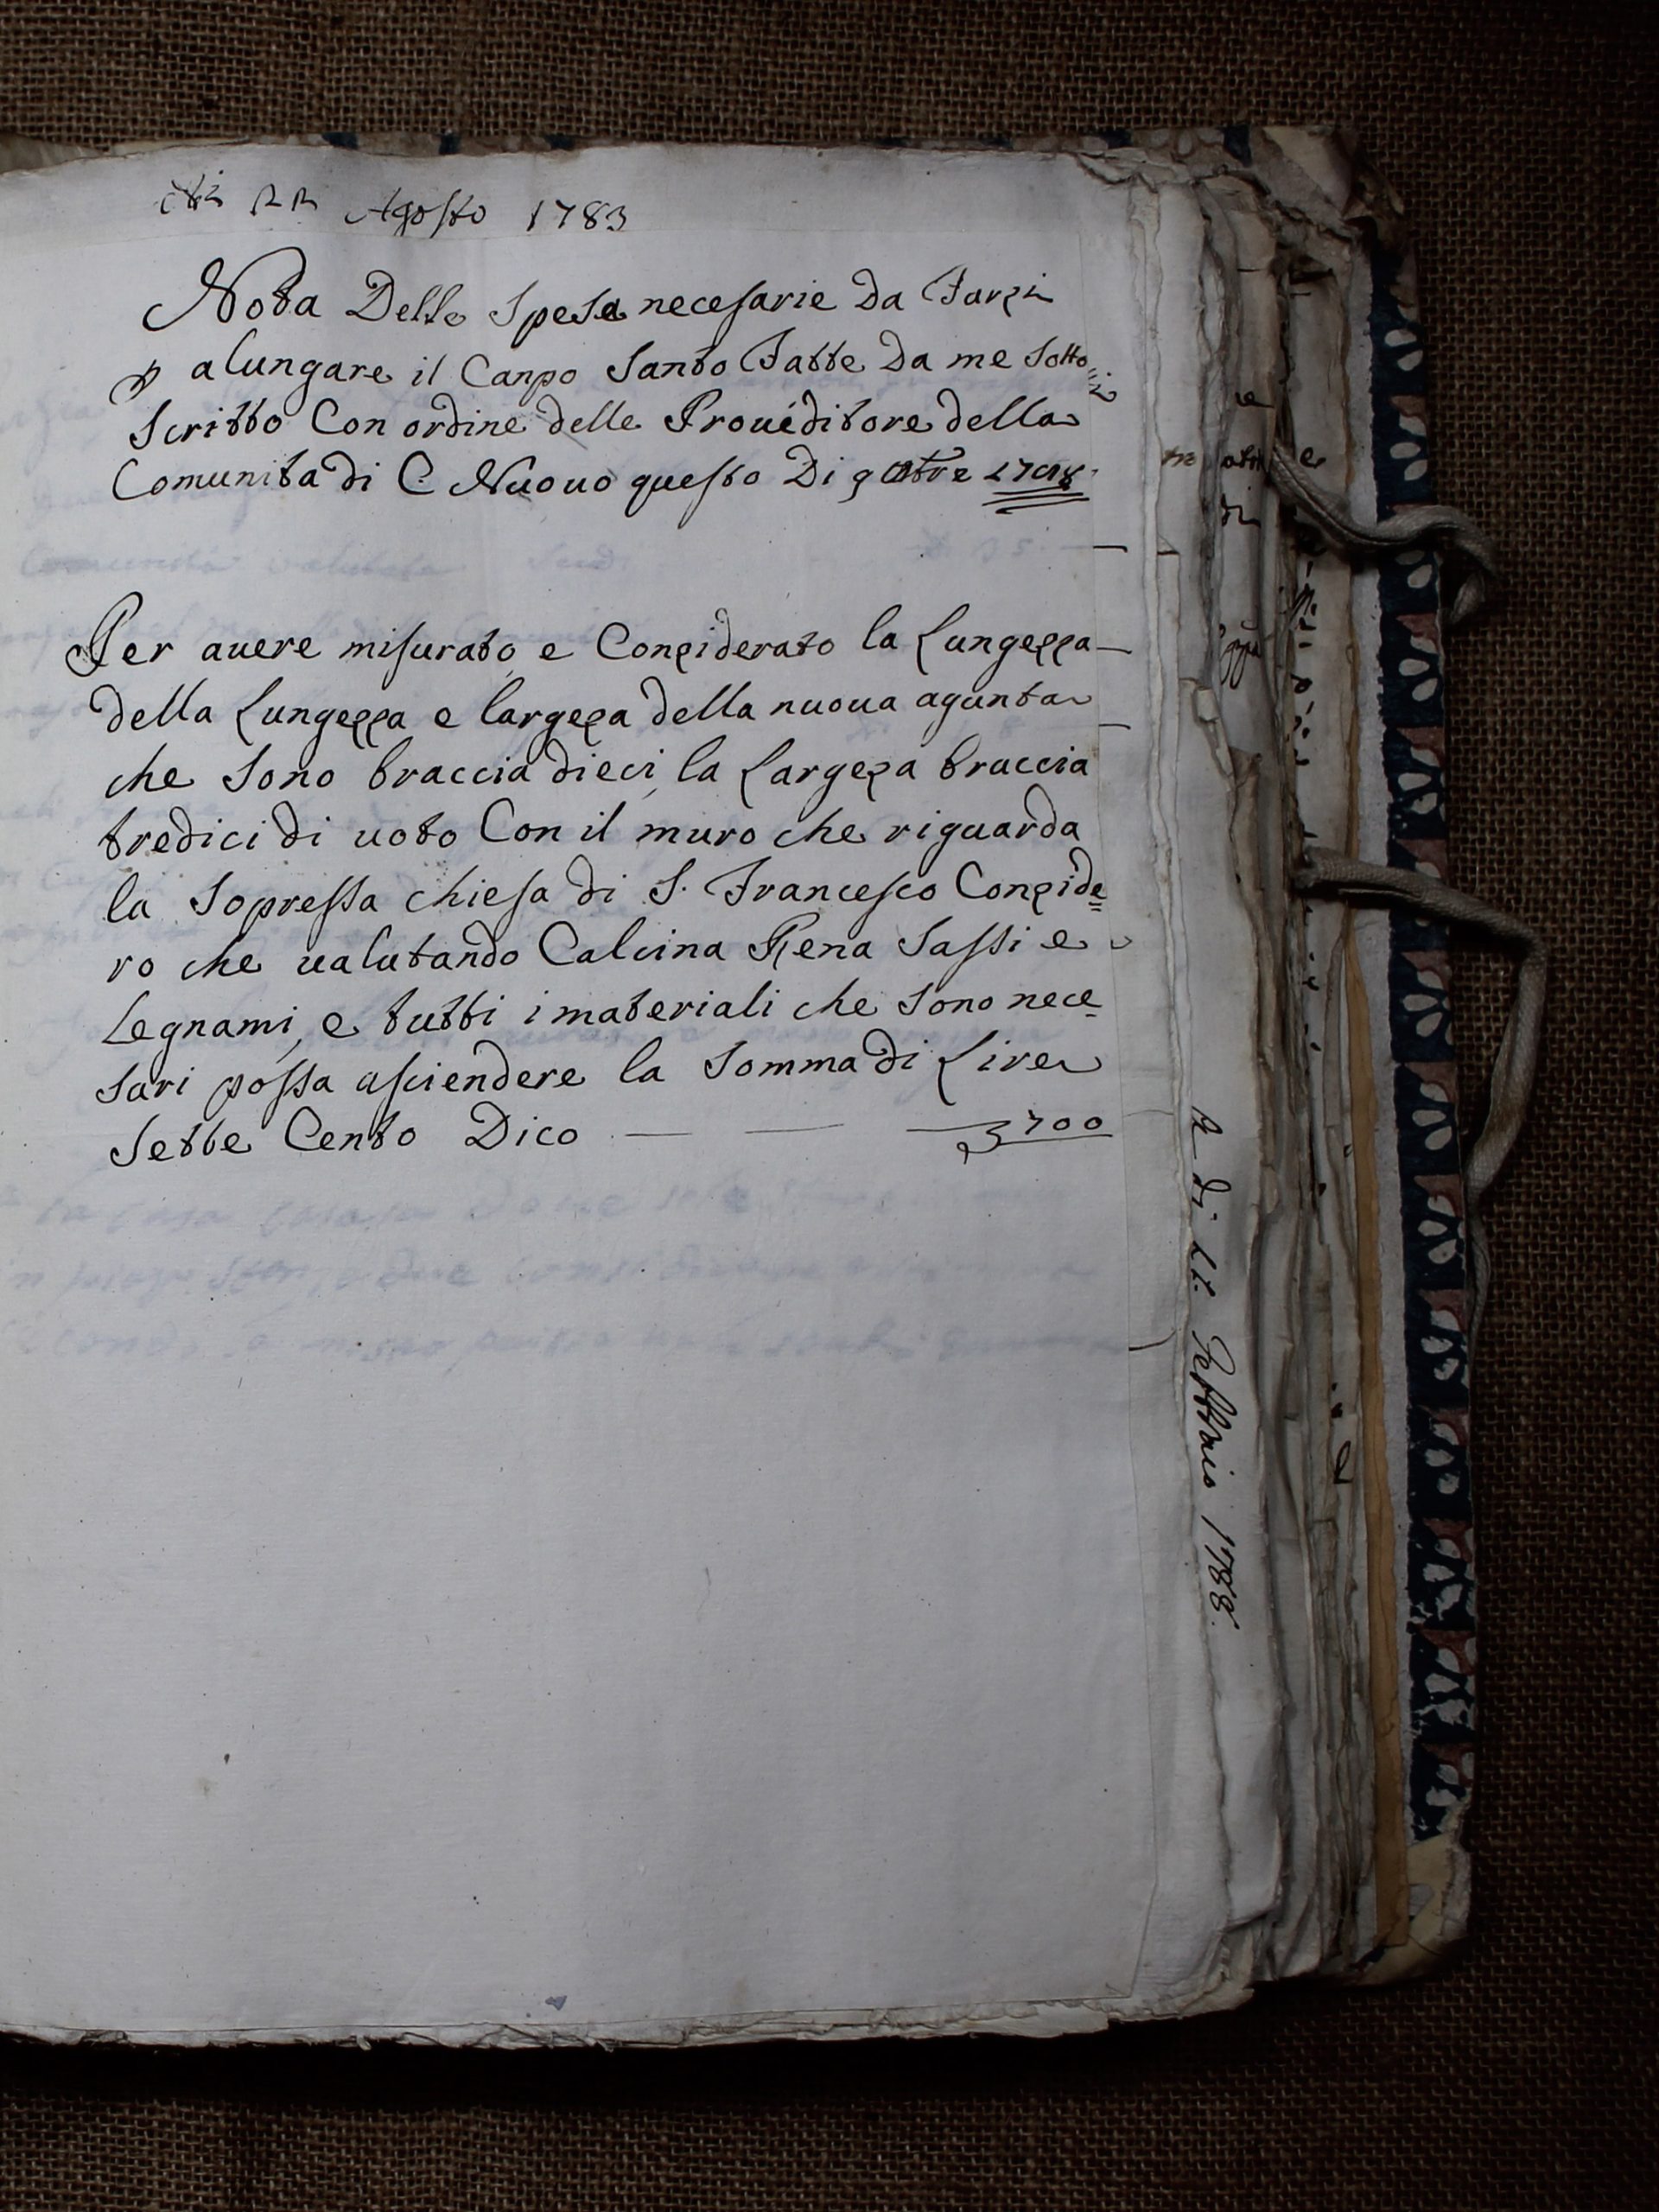 Agosto 1783
Nota Delle Spese necesarie Da Farzi
p alungare il Canpo Santo Fatte Da me Sotto
Scritto Con ordine delle Proueditore della
Comunita di C Nuouo questo Di 9 Ottre
Per auere misurato e Conziderato la Lungezza
della Lungezza e largeza della nuoua agunta
che Sono braccia dieci, la Largeza braccia
tredici di uoto Con il muro che riguarda
la Sopressa chiesa di S. Francesco Conzide=
ro che ualutando Calcina Rena Sassi e
Legnami, e tutti i materiali che Sono nece=
sari possa asciendere la Somma di Lire
Sette Cento Dico — — — 700
A di Febbraio 1788